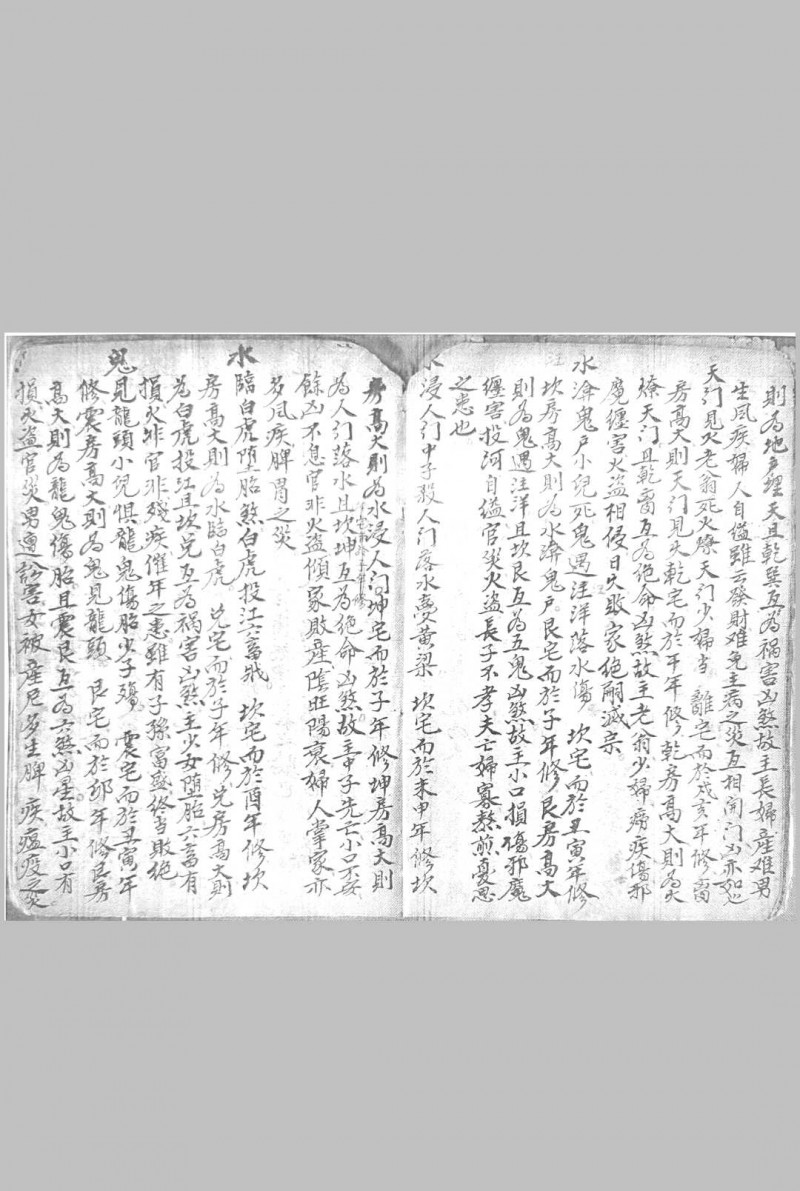 則為地户埋天且乾巽互為禍害凶煞故主長婦產难男
生風疾婦人自縊雖云發財难免主病之災互相開门凶亦如也
天门見火老翁死火燎天门少婦 離宅而於戌亥年修离
房髙大則天门見火乾宅而於午年修乾房髙大則為火
燎天门且乾离互為絶命凶煞故主老翁少婦痨疾傷邪
魔纏害火盗相侵日久敗家絶嗣滅宗
水渰鬼户小兒死鬼遇汪洋落水傷 坎宅而於丑寅年修
坎房髙大則為水渰鬼户艮宅而於子年修艮房髙大
則為鬼遇汪洋且坎艮互為五鬼凶煞故主小口損傷邪魔
纏害投河自縊官災火盗長子不孝夫亡婦寡熬煎憂思
之患也
水浸人门中子殺人门落水夢黄粱 坎宅而於未申年修坎
房髙大則為水浸人门坤宅而於子年修坤房髙大則
為人门落水且坎坤互為絶命凶煞故主中子先亡小口不安
餘凶不息官非火盗傾家敗産陰旺陽衰婦人掌家亦
多風疾脾胃之災
水臨白虎堕胎煞白虎投江六畜戕 坎宅而於酉年修坎
房髙大則為水臨白虎 兑宅而於子年修兑房髙大則
為白虎投江且坎兑互為禍害凶煞主少女堕胎六畜有
損火非官非残疾催年之患雖有子孫富盛終当敗絶
鬼見龍頭小兒惧龍鬼傷胎少子殤 震宅而於丑寅年
修震房髙大則為鬼見龍頭 艮宅而於卯年修艮房
髙大則為龍鬼傷胎且震艮互為六煞凶星故主小口有
損火盗官災男遭訟害女被産厄多生脾疾瘟疫之災